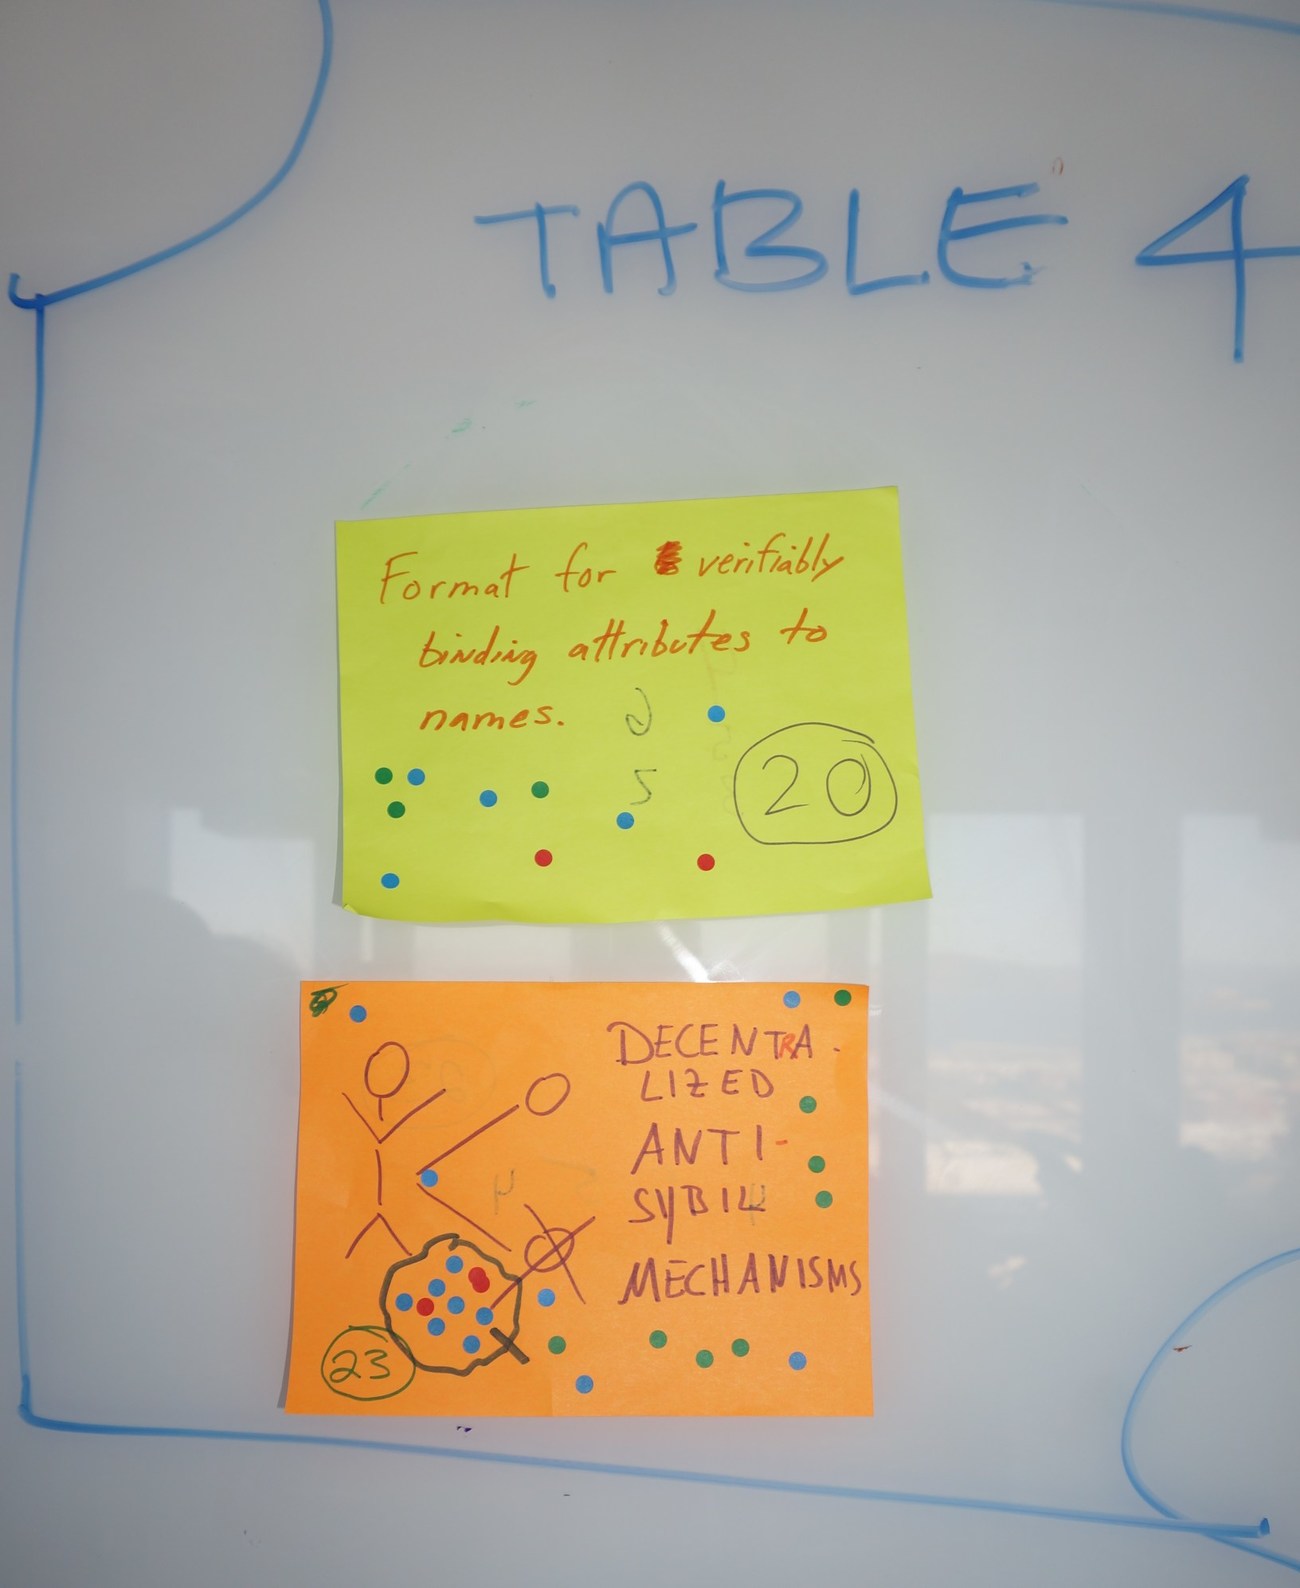 TABLE 4
Format for verifiably
binding attributes to
names.
20
DECENTRA-
LIZED
ANTI-
SYBIL
MECHANISMS
23